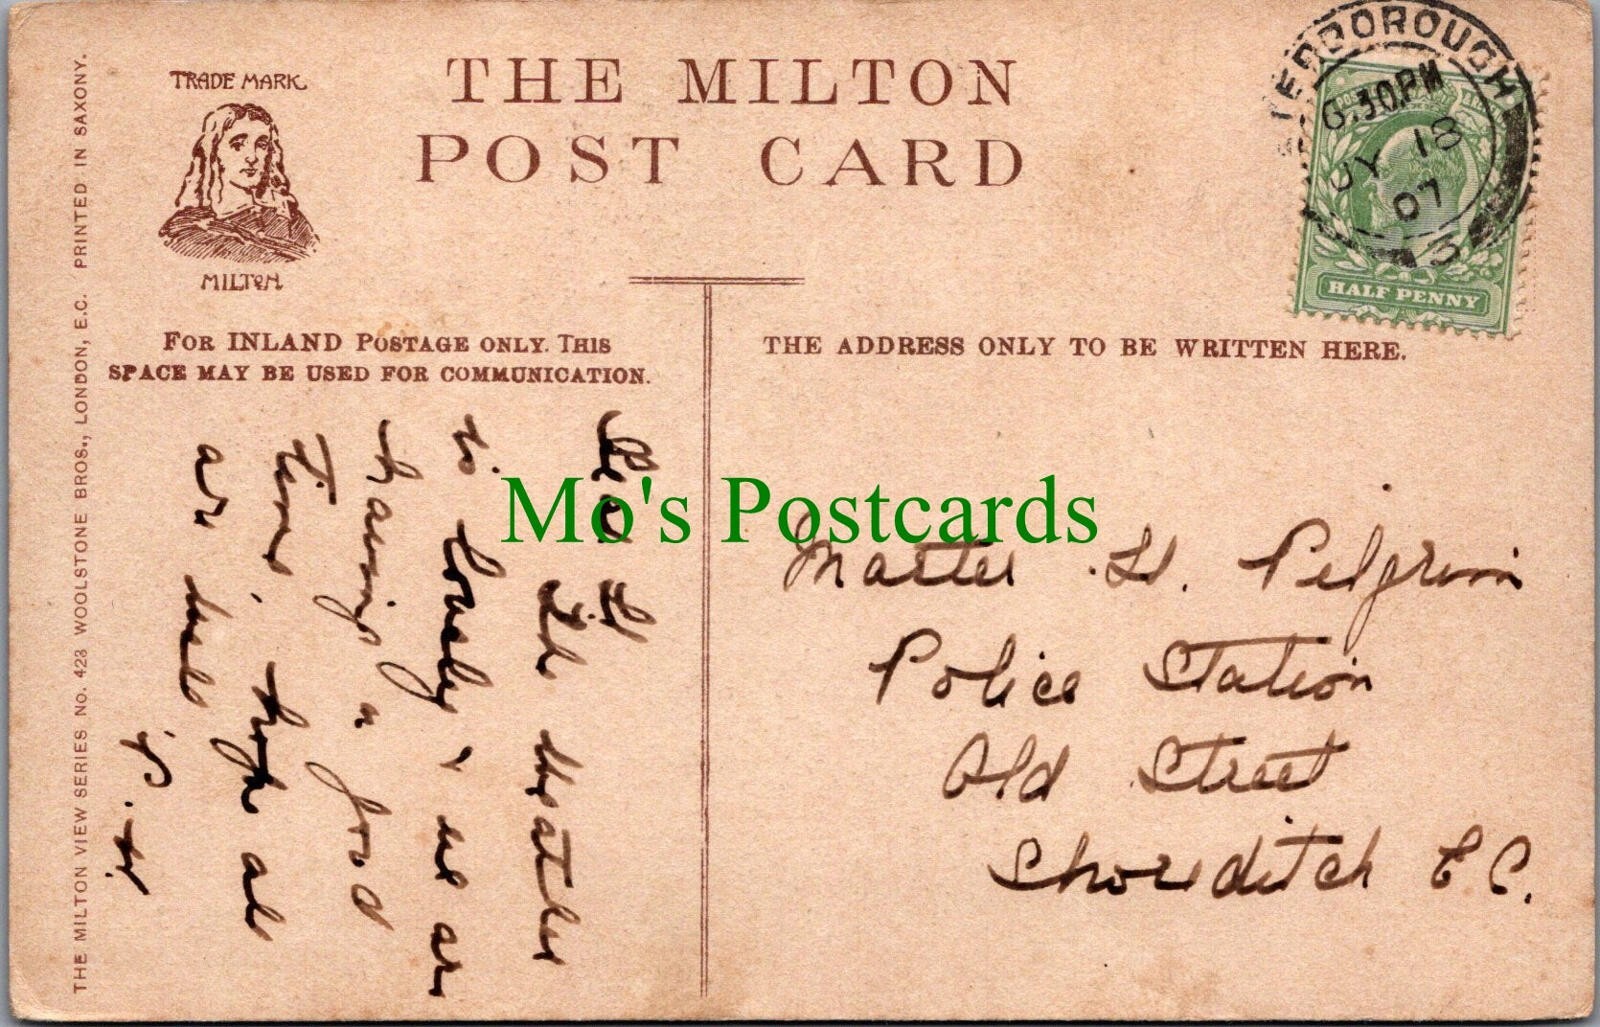 TRADE MARK
MILTON
THE MILTON
POST CARD
TERBOROUGH
6.30PM
JY 18
07
3
HALF PENNY
FOR INLAND POSTAGE ONLY. THIS
SPACE MAY BE USED FOR COMMUNICATION.
THE ADDRESS ONLY TO BE WRITTEN HERE.
THE MILTON VIEW SERIES NO. 423 WOOLSTONE BROS., LONDON, E.C. PRINTED IN SAXONY.
Dear H
The weather
is lovely & we are
having a good
time, hope all
are well
P. H
Mo's Postcards
Master H. Pelgrim
Police Station
Old Street
Shoreditch E C.